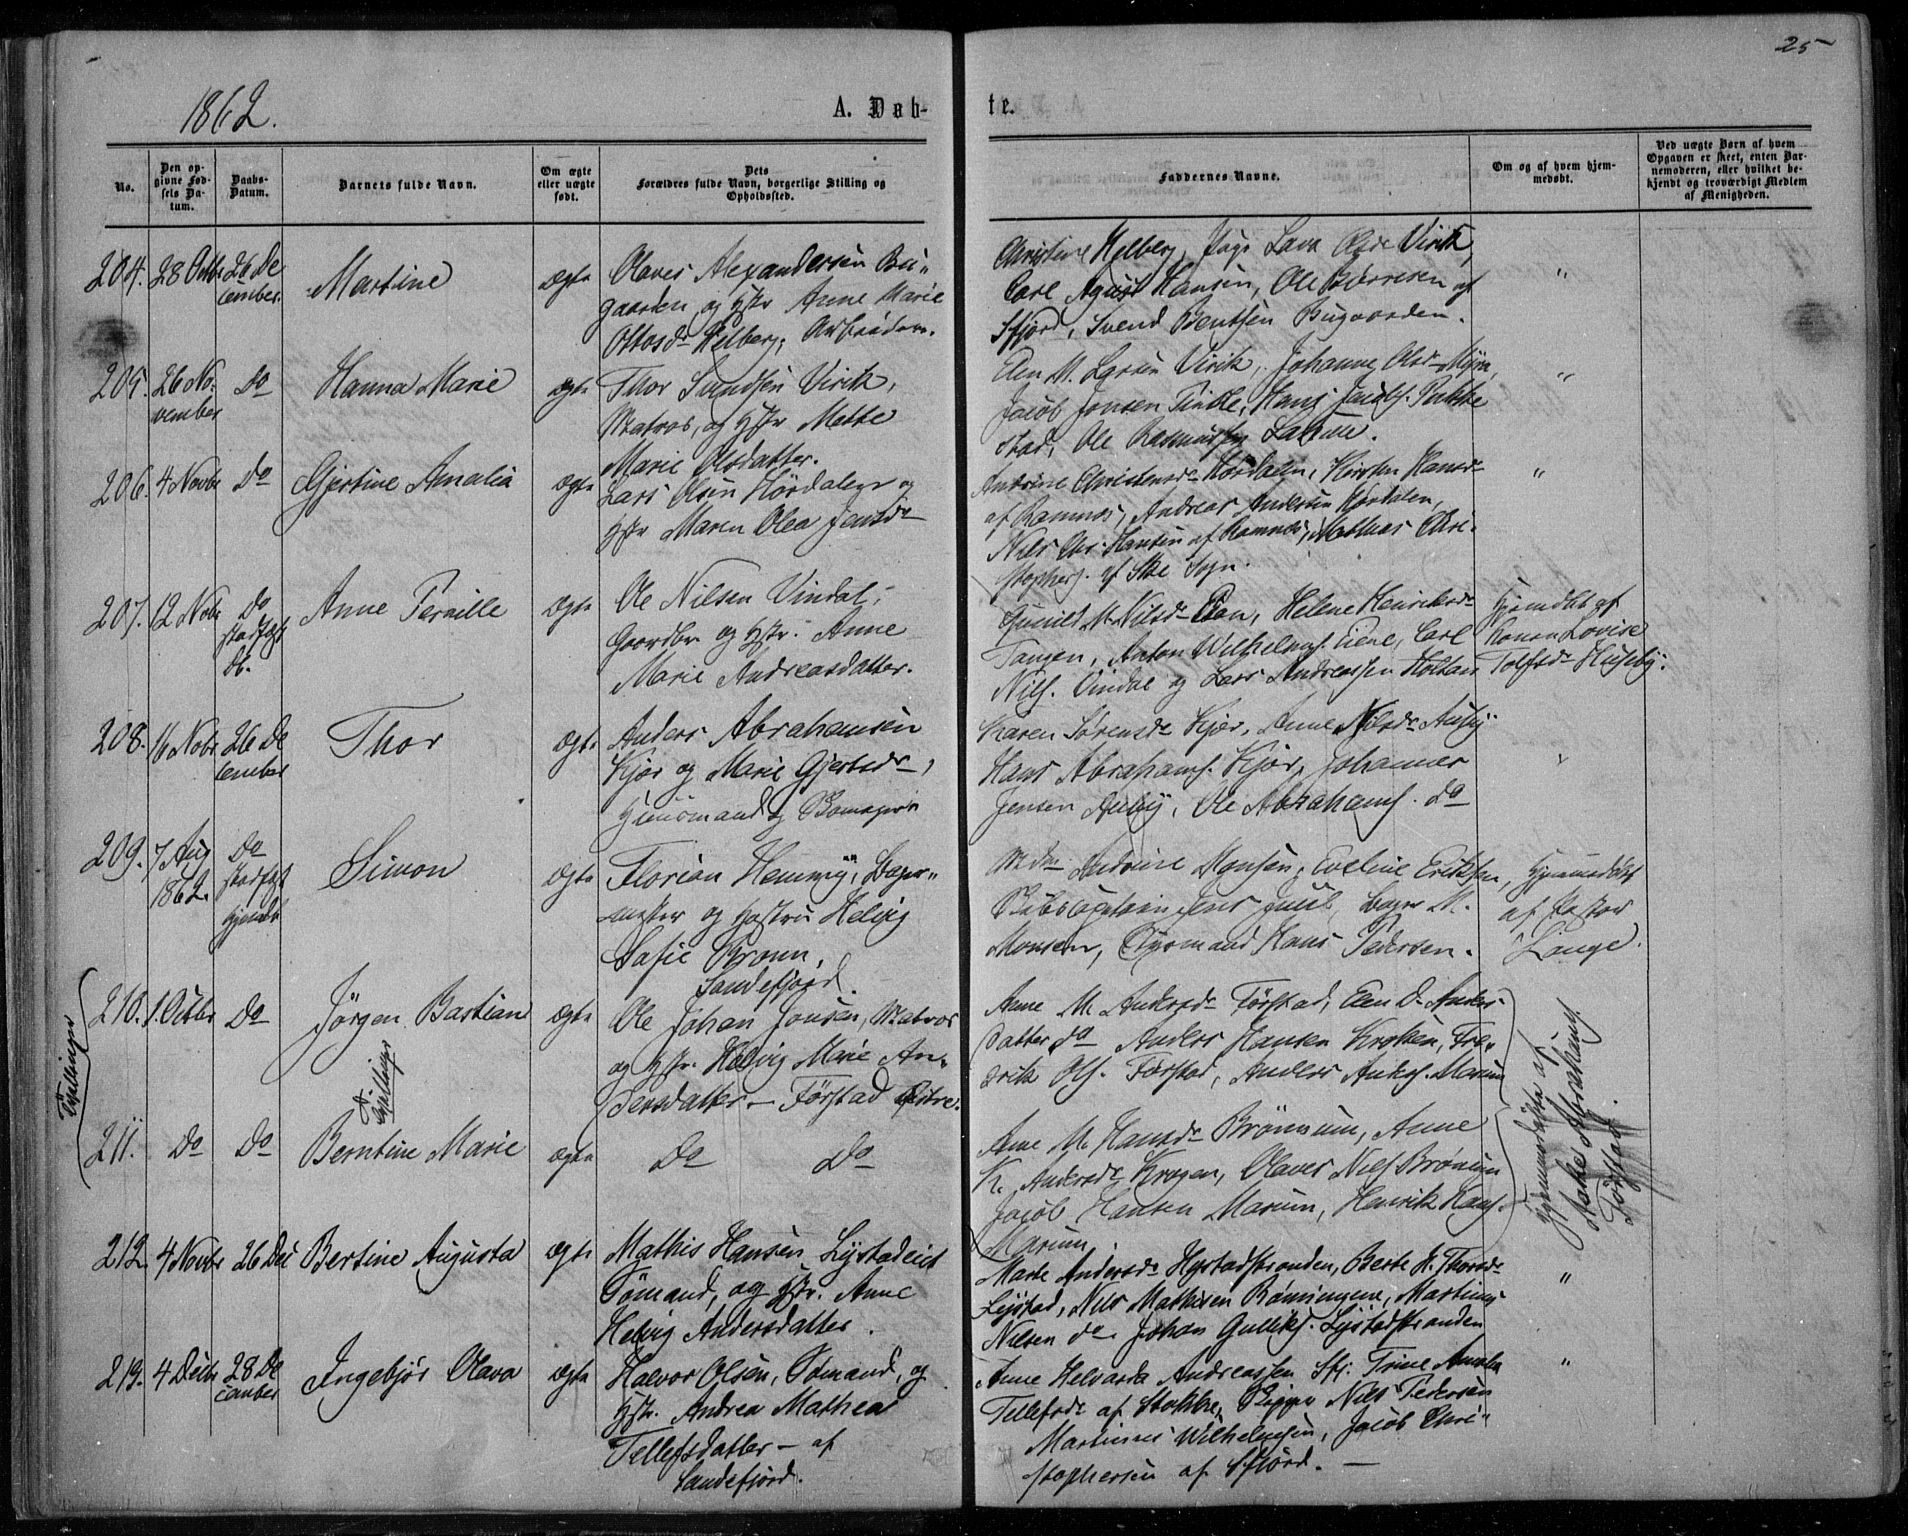 25
1862.
A. Døb-
te.
No.
Den op-
givne Fød-
sels Da-
tum.
Daabs-
Datum.
Barnets fulde Navn.
Om ægte
eller uægte
født.
Dets
Forældres fulde Navn, borgerlige Stilling og
Opholdssted.
Faddernes Navne.
Om og af hvem hjem-
medøbt.
Ved uægte Børn af hvem
Opgaven er skeet, enten Bar-
nemoderen, eller hvilket be-
kjendt og troværdigt Medlem
af Menigheden.
204. 28 Octbr 26 De
cember.
Martine
ægte
Olaves Alexandersen Bu-
gaarden, og Hstr Anne Marie
Ottosdr Helberg, Arbeider.
Christine Helberg, Olsdr Virik,
Carl Hansen, Ole Børresen af
Sfjord, Svend Bentsen Bugaarden.
"
205. 26 No-
vember
Do
Hanna Marie
ægte
Thor Svendsen Virik,
Matros, og Hstr Mette
Marie Olsdatter.
Elen M. Larsen Virik, Johanne Olsdr Myra,
Jacob Jonsen Hans
stad, Ole Rasmussen
"
206. 4 Novbr Do
Gjertine Amalia
ægte
Lars Olsen Hørdalen og
Hstr Maren Olea Jensdr
Andrine Christensdr Hørdalen, Kirsten Hansdr
af Ramnes, Andreas Andersen Hørdalen,
Nils Chr. Hansen af Ramnes, Mathias Chri-
stophers. af Sogn.
"
207. 12 Novbr Do
stadfæst
Db.
Anne Pernille
ægte
Ole Nilsen Vindal,
Gaardbr og Hstr. Anne
Marie Andreasdatter.
Gunild M. Nilsdr Helene Henriksdr
Tangen, Anton Wilhelms. Carl
Nils. Vindal og Lars Andreassen Holtan
Hjemdøbt af
Konen Lovise
Tolfsdr Huseby.
208. 16 Novbr 26 De
cember
Thor
ægte
Anders Abrahamsen
Kjær og Marie Gjertsdr,
Huusmand og
Karen Sørensdr Kjær, Anne Nilsdr Auby
Hans Abrahams. Kjær, Johannes
Jensen Auby, Ole Abrahams. do
"
209. 7 Aug
1862.
Do
stadfæst
hjemdb
Simon
ægte
Florian Hemmig, Bager-
mester og Hustru Helvig
Sofie Bronn,
Sandefjord.
Andrine Monsen, Eveline Eriksen,
Skibscapitain Jens Juul, Bager M.
Monsen, Styrmand Hans Pedersen.
Hjemmedøbt
af Pastor
Lange.
Tvillinger
210. 1. Octbr Do
Jörgen Bastian
Tvillinger
ægte
Ole Johan Jonsen, Matros
og Hstr. Helvig Marie An-
dersdatter — Förstad Østre.
Anne M. Andersdr Förstad, Elen D. Anders-
datter do Anders Hansen Kroken, Fre-
drik Ols. Förstad, Anders Anders. Marum
211. Do Do
Berntine Marie
ægte
Do Do
Anne M. Hansdr Brönnum, Anne
K. Andersdr Krogen, Olaves Nils. Brönnum
Jacob Hansen Marum, Henrik Hans.
Marum.
Hjemmedøbte af
Abrahams.
Förstad.
212. 4 Novbr 26 Dec
Bertine Augusta
ægte
Mathis Hansen Lystadeiet
Sömand, og Hstr. Anne
Helvig Andersdatter.
Marte Andersdr Hystadstranden, Berte K. Thorsdr
Lystad, Nils Mathisen Rönningene, Martinus
Nilsen do Johan Gulliks. Lystadstranden
"
213. 4 Decbr 28 De
cember
Ingebjör Olava
ægte
Halvor Olsen, Sömand, og
Hstr. Andrea Mathea
Tellefsdatter — af
Sandefjord.
Anne Helvarda Andreassen Sfj. Trine Amalia
Tellefsdr af Stokke, Skipper Nils Pedersen
Martinius Wilhelmsen, Jacob Chri-
stophersen af Sfiord. —
"